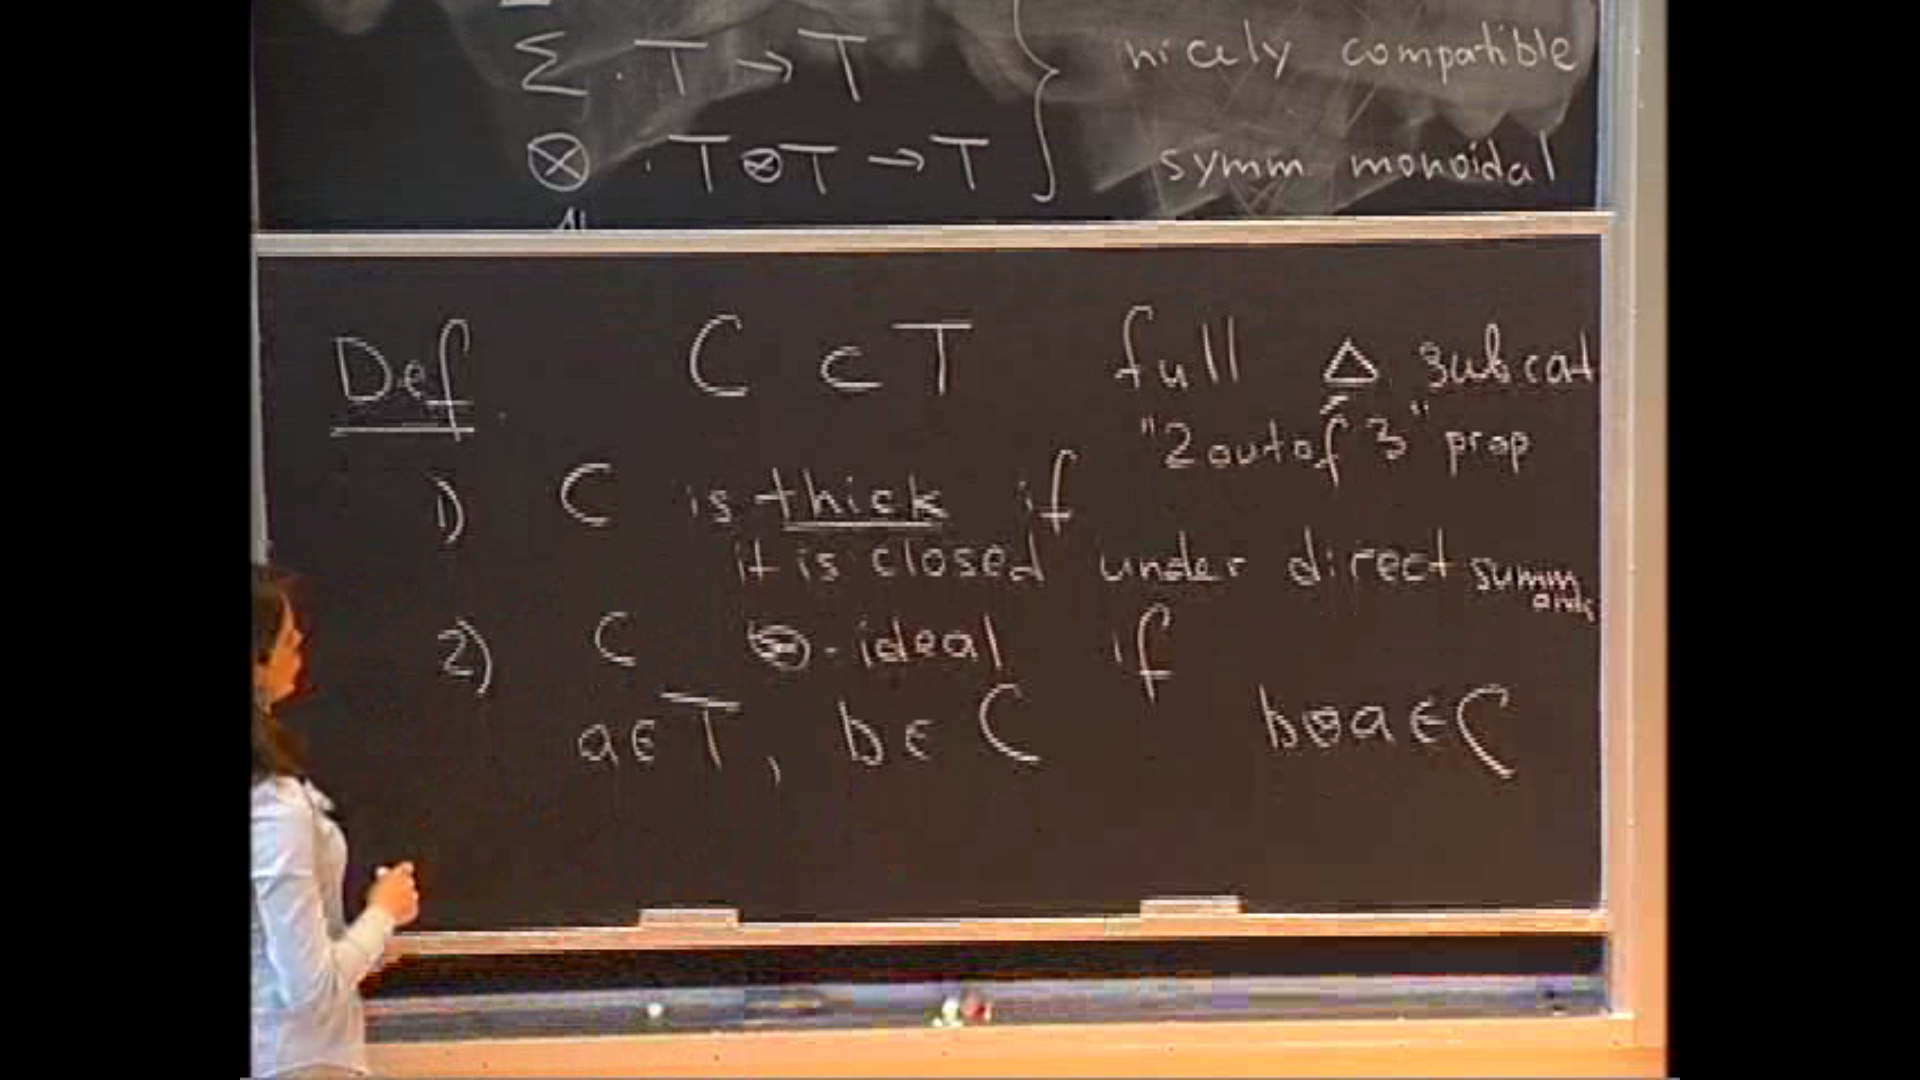 Σ : T → T } nicely compatible
⊗ : T⊗T → T symm monoidal
Def. C ⊂ T full Δ subcat
"2 out of 3" prop
1) C is thick if
it is closed under direct summands
2) C ⊗-ideal if
a∈T, b∈C if b⊗a∈C